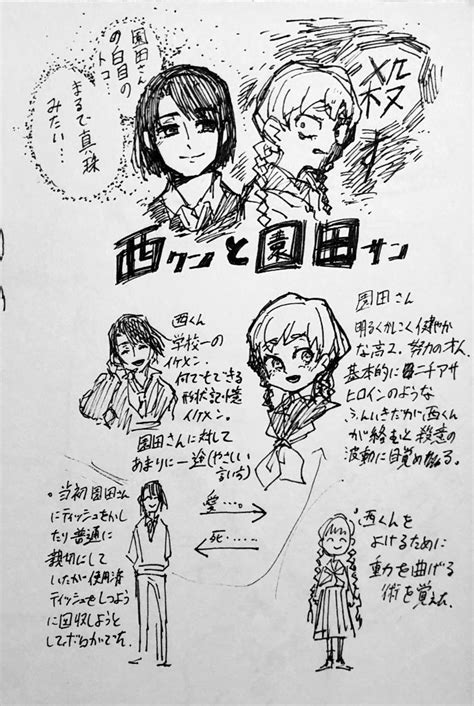 園田さん
の白目の
トコ…
まるで真珠
みたい…
殺す
西クンと園田サン
西くん
学校一の
イケメン。
何でもできる
形状記憶
イケメン。
園田さんに対して
あまりに一途(やさしい
言い方)
園田さん
明るくかしこく健やか
な高2。努力の才人
基本的にニチアサ
ヒロインのような
ふんいきだが西くん
が絡むと殺意の
波動に目覚める。
。当初園田さん
にティッシュをかし
たり普通に
親切にして
いたが使用済
ティッシュをしつよう
に回収しようと
して
愛…。
死…
。西くんを
よけるために
動力を曲げる
術を覚えた。